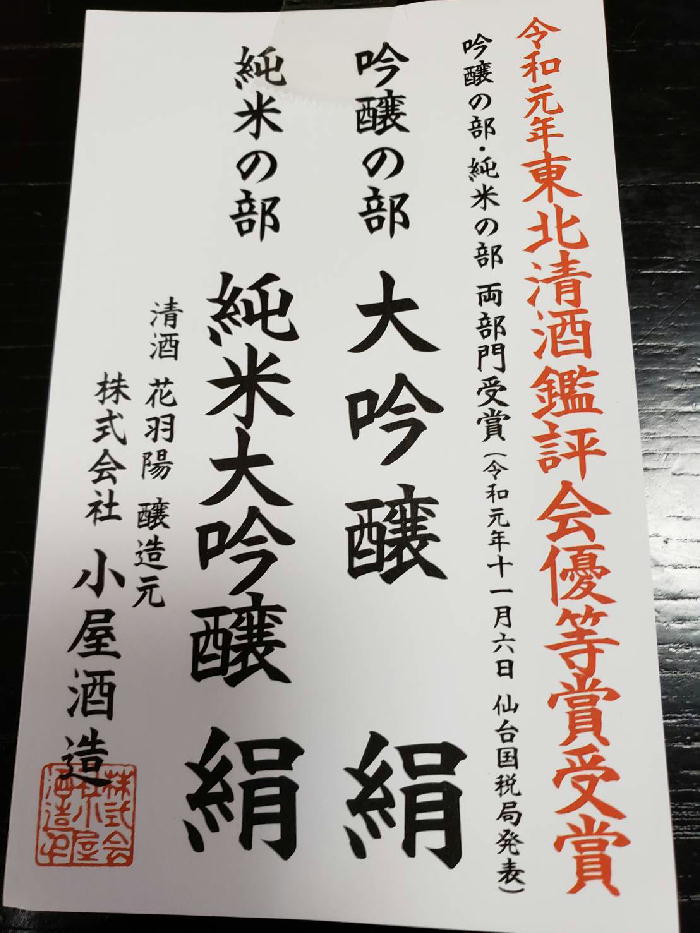 令和元年東北清酒鑑評会優等賞受賞
吟醸の部・純米の部 両部門受賞(令和元年十一月六日 仙台国税局発表)
吟醸の部 大吟醸 絹
純米の部 純米大吟醸 絹
清酒 花羽陽 醸造元
株式会社 小屋酒造
株式会
社小屋
酒造